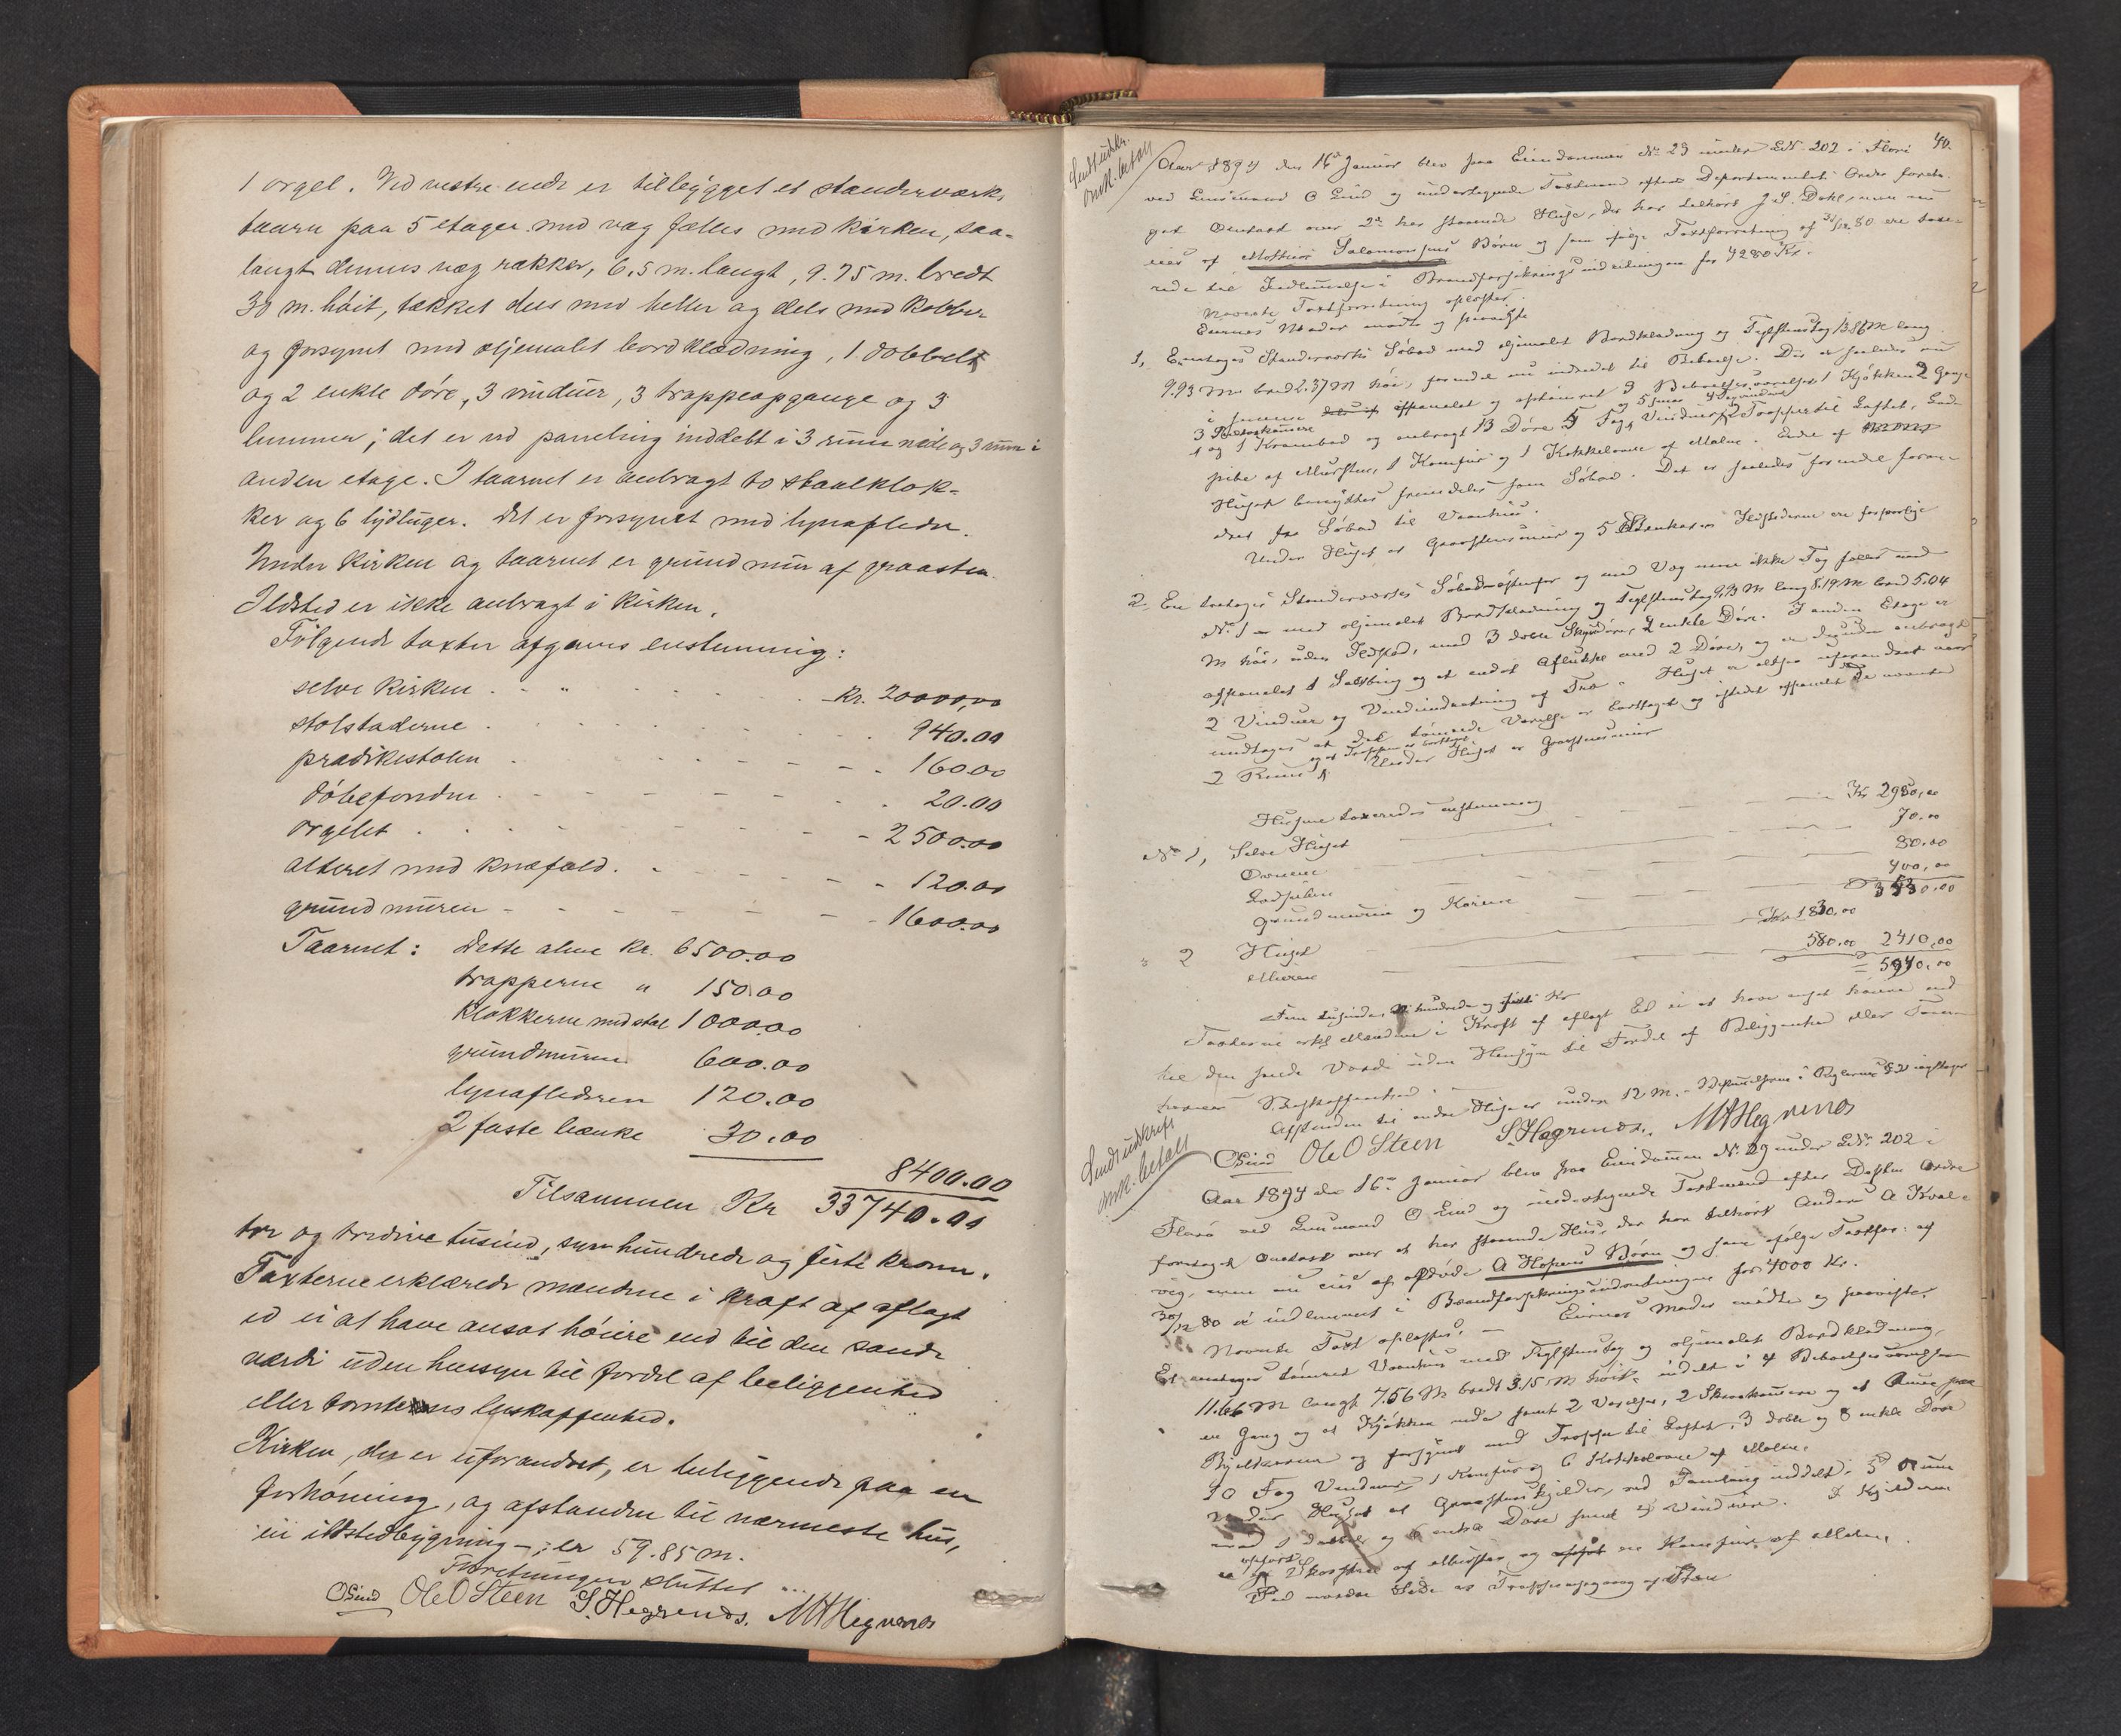 1 orgel. Ved vestre ende er tilbygget et stænderværks
taarn paa 5 etager med væg fælles med kirken, saa-
langt dennes væg rækker, 6,5 m. langt, 9.75 m. bredt
30 m. høit, tækket dels med heller og dels med kobber
og forsynet med oljemalet bordklædning, 1 dobbelt
og 2 enkle døre, 3 vinduer, 3 trappeopgange og 3
lemmer; det er ved paneling inddelt i 3 rum nede og 3 rum i
anden etage. I taarnet er anbragt to staalklok-
ker og 6 lydluger. Det er forsynet med lynafleder.
Under kirken og taarnet er grundmur af graasten.
Ildsted er ikke anbragt i kirken.
Følgende taxter afgaves enstemmig:
selve kirken . . . kr. 20000,00
stolstaderne . . . 940.00
prædikestolen . . . 160.00
døbefonden . . . 20.00
orgelet . . . 2500.00
alteret med knæfald . . . 120.00
grundmuren - - - 1600.00
Taarnet: Dette alene kr. 6500.00
trapperne " 150.00
klokkerne med stol 1000.00
grundmuren 600.00
lynaflederen 120.00
2 faste bænke 30.00
8400.00
Tilsammen Kr 33740.00
tre og tredive tusind, syv hundrede og firti kroner.
Taxterne erklærede mændene i kraft af aflagt
ed ei at have ansat høiere end til den sande
værdi uden hensyn til fordel af beliggenhed
eller tomtens beskaffenhed.
Kirken, der er uforandret, er beliggende paa en
forhøining, og afstanden til nærmeste hus,
en ildstedbygning -, er 59.85 m.
Forretningen sluttet
O Lind Ole O Steen S. Hegrenæs. M A Hegrenæs
40.
Sendt udskr.
Omk. betalt
Aar 1894 den 16de Januar blev paa Eiendommen No 23 under LN. 202 i Florø
ved Lensmand O Lind og undertegnede Taxtmænd efter Departementets Ordre foreta-
get Omtaxt over 2de her staaende Huse, der har tilhørt J. S. Dahl, men nu
eies af Mathias Salomonsens Børn og som ifølge Taxtforretning af 30/12 80 ere taxe-
rede til Indlemmelse i Brandforsikringsindretningen for 4280 Kr.
Nævnte Taxtforretning oplæstes.
Eiernes Moder mødte og paaviste
1, En etages Stænderværks Søbod med oljemalet Bordklædning og Teglstenstag 13.86 M lang
9.93 M bred 2.37 M høi, forandret nu indredet til Beboelse. Der er saaledes nu
i samme opanelet og optømret 3 Beboelsesværelser, 1 Kjøkken 2 Gange
og 1 Krambod og anbragt 13 Døre 5 Fag Vinduer, 2 Trapper til Loftet, Lod-
pibe af Mursten, 1 Komfur og 1 Kakkelovn af Malm. Endel af
Huset benyttes fremdeles som Søbod. Det er saaledes forandret foran-
dret fra Søbod til Vaanhus.
Under Huset er Graastensmur og 5 Stenkar. Ildstederne ere forsvarlige
2. En toetages Stænderværks Søbod østenfor og med Væg men ikke Tag fælles med
No 1 - med oljemalet Bordklædning og Teglstenstag 9.93 M lang 8.19 M bred 5.04
M høi, uden Ildsted, med 3 doble Skyvdøre, 2 enkle Døre. I anden Etage er
oppanelet 1 Saltbing og et andet Aflukke med 2 Døre, og er desuden anbragt
2 Vinduer og Vindeindretning af Træ. Huset er altsaa uforandret naar
undtages at det tømrede Værelse er borttaget og istedet oppanelet de nævnte
og at Trappen er borttaget
2 Rum. Under Huset er Graastensmur
Husene taxeredes enstemmig
No 1, Selve Huset Kr 2980,00
Ovnene 70.00
Lodpiben 80.00
Grundmuren og Karene 400,00
3530.00
" 2 Huset Kr 1830,00
Muren 580.00 2410,00
= 5940,00
Fem tusinde ni hundrede og firti Kr
Taxterne erkl. Mændene i Kraft af aflagt Ed ei at have ansat høiere end
til den sande Værdi uden Hensyn til Fordel af Beliggenhed eller Tom-
ternes Beskaffenhed.
Afstanden til andre Huse er under 12 M.
O Lind Ole O Steen S. Hegrenæs. M A Hegrenæs
Sendt udskrift
Omk. betalt
Aar 1894 den 16de Januar blev paa Eiendommen No 29 under LNo 202 i
Florø ved Lensmand O Lind og undertegnede Taxtmænd efter Depten Ordre
foretaget Omtaxt over et her staaende Hus, der har tilhørt Anders A Kval-
vig, men nu eies af afdøde A Hopens Børn og som ifølge Taxtfor. af
30/12 80 er indlemmet i Brandforsikringsindretningen for 4000 Kr.
Nævnte Taxt oplæstes. - Eiernes Moder mødte og paaviste.
Et enetages tømret Vaanhus med Teglstenstag og oljemalet Bordklædning,
11.66 M langt 7.56 M bredt 3.15 M høit, inddelt i 4 Beboelsesværelser
en Gang og et Kjøkken nede samt 2 Værelser, 2 Skraakamre og et Rum paa
Bjelkerne og forsynet med Trappe til Loftet, 3 doble og 8 enkle Døre
10 Fag Vinduer, 1 Komfur og 6 Kakkelovne af Malm.
Under Huset er Graastenskjelder, ved Paneling inddelt i 5 Rum
med 1 dobbel og 6 enkle Døre samt Vinduer. I Kjelderen
er opført Skorsten af Mursten og en Komfur af Malm.
Ved nordre Side er Trappeopgang af Træ